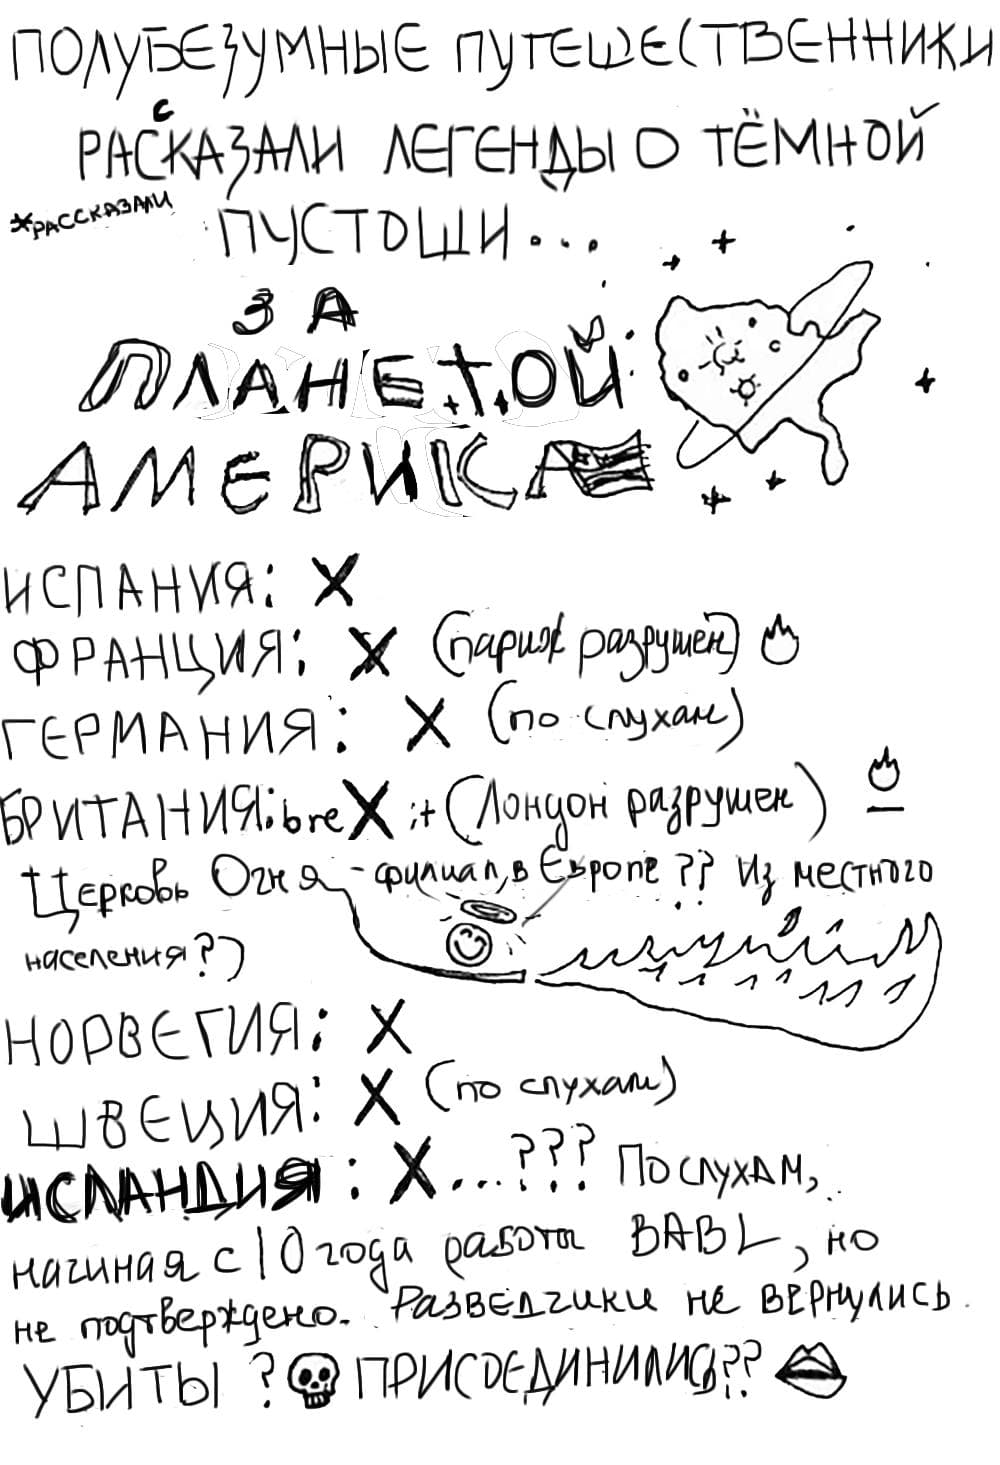 ПОЛУБЕЗУМНЫЕ ПУТЕШЕСТВЕННИКИ
РАССКАЗАЛИ ЛЕГЕНДЫ О ТЁМНОЙ
*РАССКАЗАЛИ
ПУСТОШИ...
ЗА
ПЛАНЕТОЙ
АМЕРИКА
ИСПАНИЯ: X
ФРАНЦИЯ: X (париж разрушен)
ГЕРМАНИЯ: X (по слухам)
БРИТАНИЯ: breXit (Лондон разрушен)
Церковь Огня - филиал, в Европе?? Из местного
населения?)
НОРВЕГИЯ: X
ШВЕЦИЯ: X (по слухам)
ИСЛАНДИЯ: X...??? По слухам,
начиная с 10 года работы BABL, но
не подтверждено. Разведчики не вернулись.
УБИТЫ? ПРИСОЕДИНИЛИСЬ??